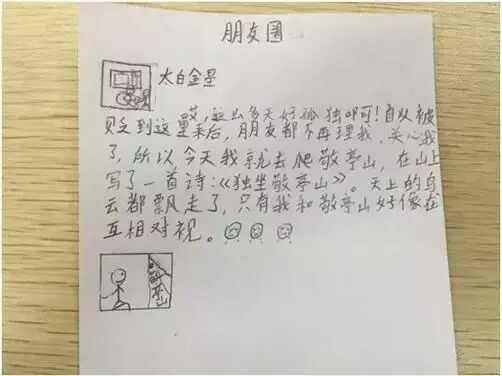 朋友圈
太白金星
哎,这么多天好孤独呀!自从被
贬到这里来后,朋友都不再理我,关心我
了,所以今天我就去爬敬亭山,在山上
写了一首诗:《独坐敬亭山》。天上的鸟
云都飘走了,只有我和敬亭山好像在
互相对视。
敬亭山